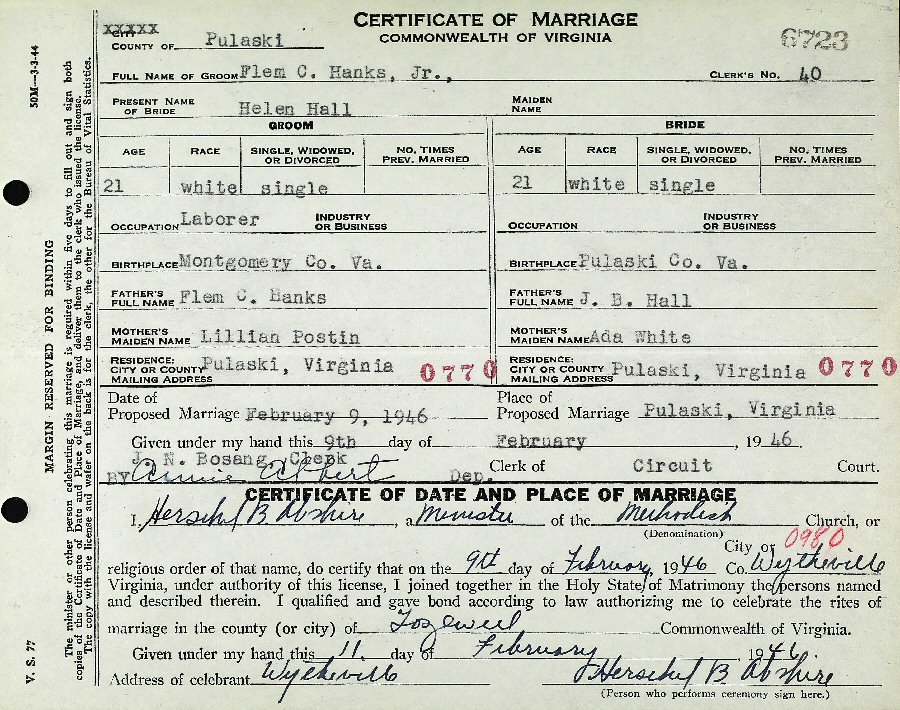 CERTIFICATE OF MARRIAGE
COMMONWEALTH OF VIRGINIA
6723
XXXXX
CITY
COUNTY OF Pulaski
FULL NAME OF GROOM Flem C. Hanks, Jr.,
CLERK'S NO. 40
PRESENT NAME OF BRIDE Helen Hall
MAIDEN NAME
GROOM
BRIDE
AGE RACE SINGLE, WIDOWED, OR DIVORCED NO. TIMES PREV. MARRIED
AGE RACE SINGLE, WIDOWED, OR DIVORCED NO. TIMES PREV. MARRIED
21 white single
21 white single
OCCUPATION Laborer INDUSTRY OR BUSINESS
OCCUPATION INDUSTRY OR BUSINESS
BIRTHPLACE Montgomery Co. Va.
BIRTHPLACE Pulaski Co. Va.
FATHER'S FULL NAME Flem C. Hanks
FATHER'S FULL NAME J. B. Hall
MOTHER'S MAIDEN NAME Lillian Postin
MOTHER'S MAIDEN NAME Ada White
RESIDENCE: CITY OR COUNTY MAILING ADDRESS Pulaski, Virginia 0770
RESIDENCE: CITY OR COUNTY MAILING ADDRESS Pulaski, Virginia 0770
Date of Proposed Marriage February 9, 1946
Place of Proposed Marriage Pulaski, Virginia
Given under my hand this 9th day of February, 1946
J. N. Bosang, Clerk
BY Annie Albert Dep. Clerk of Circuit Court.
CERTIFICATE OF DATE AND PLACE OF MARRIAGE
I, Herschel B Abshire, a Minister of the Methodist Church, or
(Denomination)
City or 0980
religious order of that name, do certify that on the 9th day of February, 1946 Co. Wytheville
Virginia, under authority of this license, I joined together in the Holy State of Matrimony the persons named
and described therein. I qualified and gave bond according to law authorizing me to celebrate the rites of
marriage in the county (or city) of Tazewell Commonwealth of Virginia.
Given under my hand this 11 day of February, 1946
Address of celebrant Wytheville Herschel B Abshire
(Person who performs ceremony sign here.)
50M—3-3-44
MARGIN RESERVED FOR BINDING
V. S. 77
The minister or other person celebrating this marriage is required within five days to fill out and sign both
copies of the Certificate of Date and Place of Marriage, and deliver them to the clerk who issued the license.
The copy with the license and wafer on the back is for the clerk, the other for the Bureau of Vital Statistics.